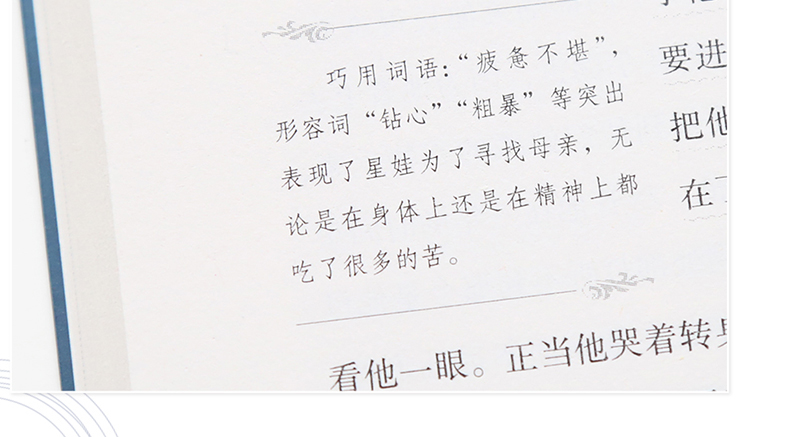 巧用词语:“疲惫不堪”,
形容词“钻心”“粗暴”等突出
表现了星娃为了寻找母亲,无
论是在身体上还是在精神上都
吃了很多的苦。
要进
把他
在
看他一眼。正当他哭着转